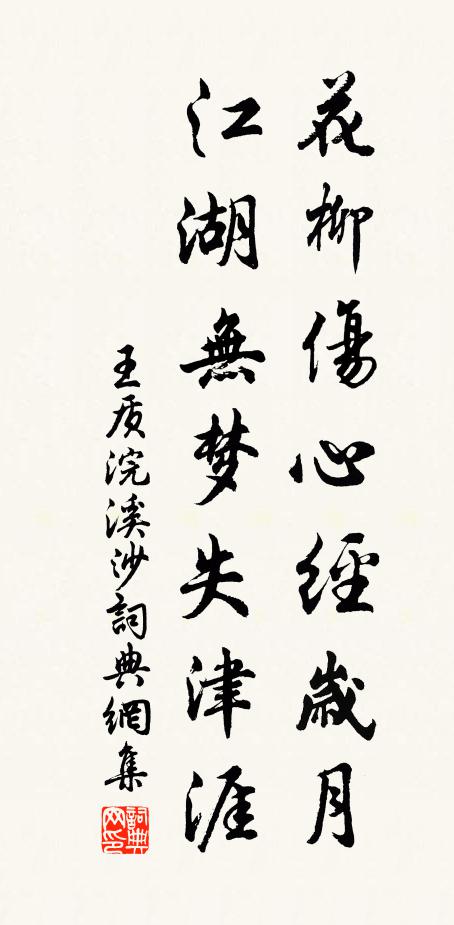 花柳傷心經歲月
江湖無梦失津涯
王质浣溪沙詞典網集
詞典网印